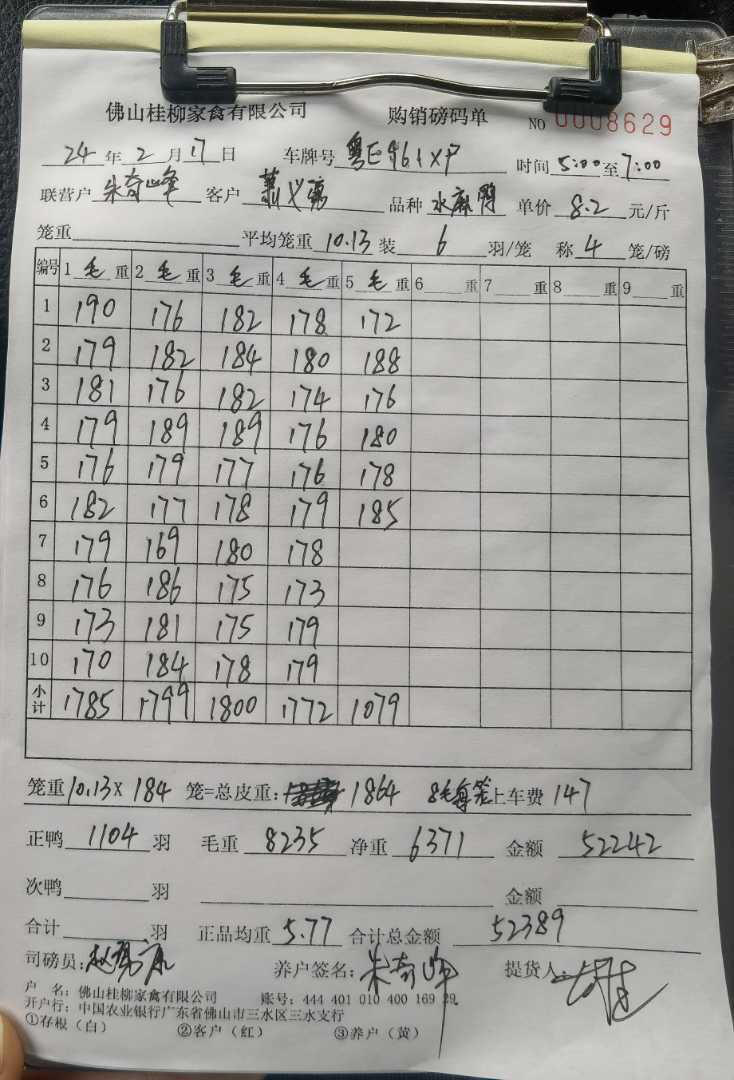 佛山桂柳家禽有限公司 购销磅码单 NO 0008629
24 年 2 月 17 日 车牌号 粤E961XP 时间 5:00 至 7:00
联营户 朱奇峰 客户 品种 水麻鸭 单价 8.2 元/斤
笼重 平均笼重 10.13 装 6 羽/笼 称 4 笼/磅
编号 1 毛 重 2 毛 重 3 毛 重 4 毛 重 5 毛 重 6 重 7 重 8 重 9 重
1 190 176 182 178 172
2 179 182 184 180 188
3 181 176 182 174 176
4 179 189 189 176 180
5 176 179 177 176 178
6 182 177 178 179 185
7 179 169 180 178
8 176 186 175 173
9 173 181 175 179
10 170 184 178 179
小计 1785 1799 1800 1772 1079
笼重 10.13 X 184 笼=总皮重: 1864 8毛每笼 上车费 147
正鸭 1104 羽 毛重 8235 净重 6371 金额 52242
次鸭 羽 金额
合计 羽 正品均重 5.77 合计总金额 52389
司磅员: 养户签名: 朱奇峰 提货人:
户 名: 佛山桂柳家禽有限公司 账号: 444 401 010 400 169 29
开户行: 中国农业银行广东省佛山市三水区三水支行
①存根(白) ②客户(红) ③养户(黄)